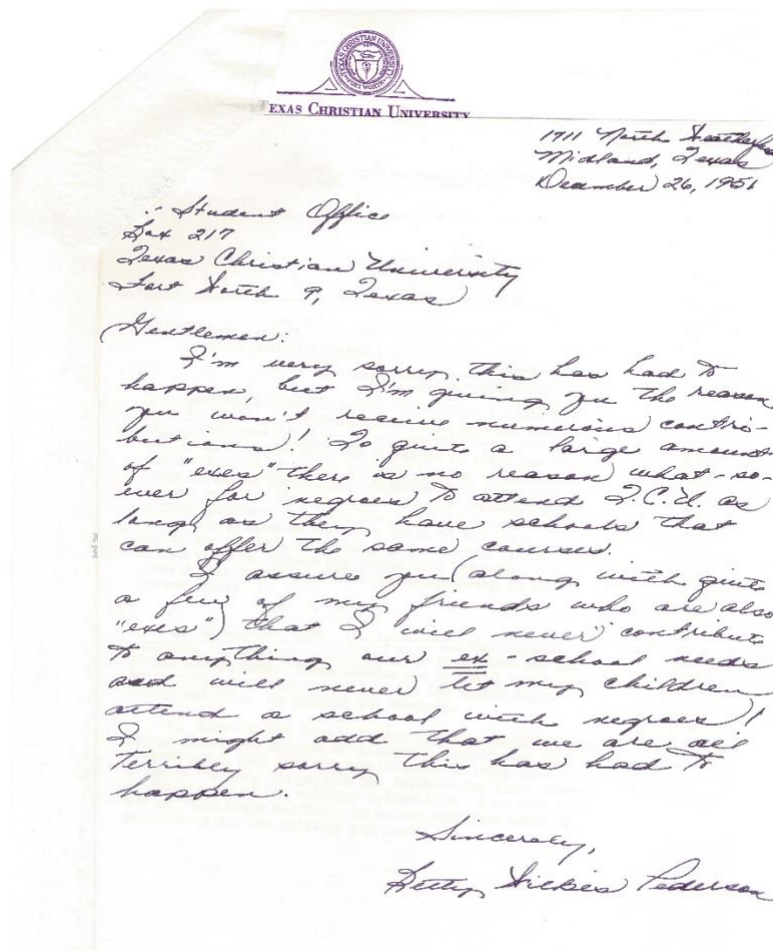 TEXAS CHRISTIAN UNIVERSITY
FORT WORTH
TEXAS CHRISTIAN UNIVERSITY
1711 North
Midland, Texas
December 26, 1951
Student Office
Box 217
Texas Christian University
Fort Worth 9, Texas
Gentlemen:
I'm very sorry this has had to
happen, but I'm giving you the reason
you won't receive numerous contri-
butions! To quite a large amount
of "exes" there is no reason what-so-
ever for negroes to attend T.C.U. as
long as they have schools that
can offer the same courses.
I assure you (along with quite
a few of my friends who are also
"exes") that I will never contribute
to anything our ex-school needs
and will never let my children
attend a school with negroes!
I might add that we are all
terribly sorry this has had to
happen.
Sincerely,
Betty Wilkes Pederson